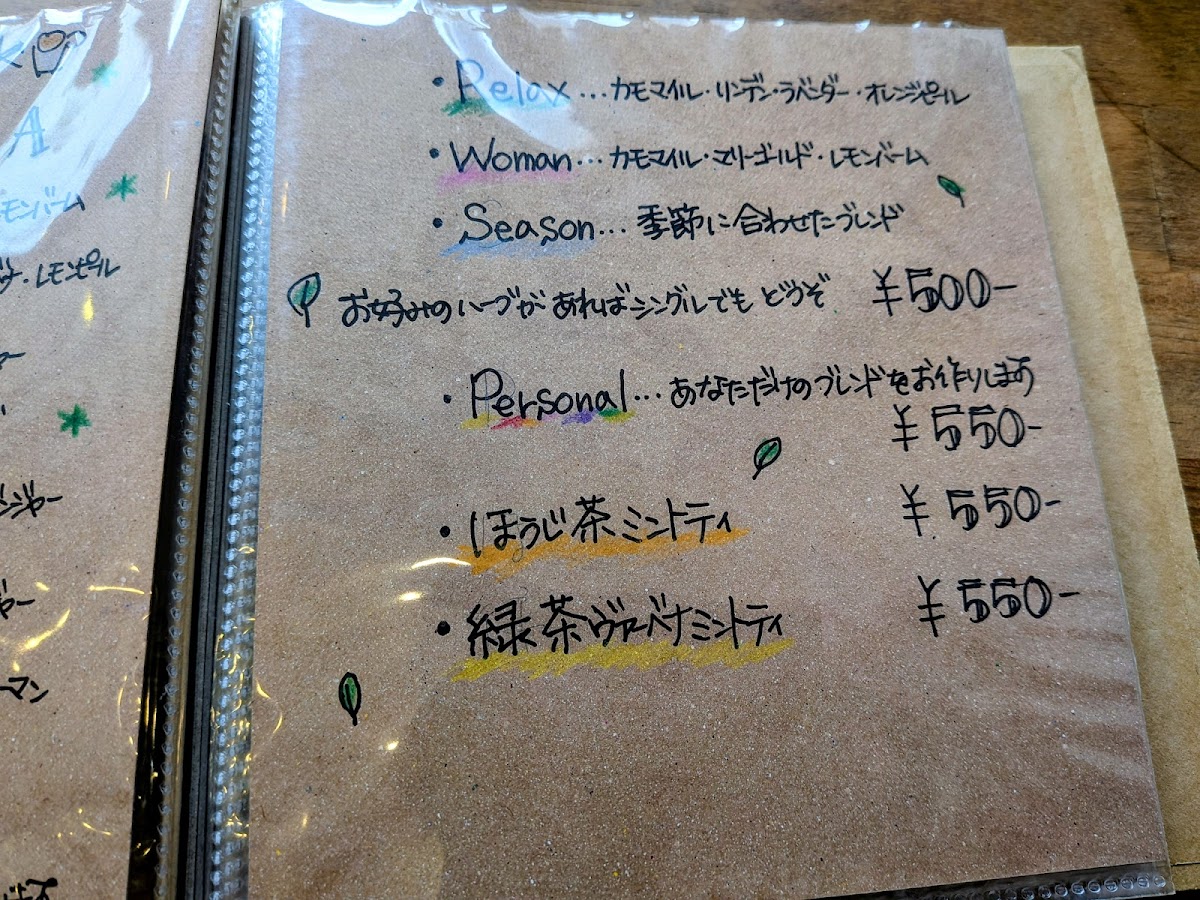 A
モンバーム
・レモンピール
ジャー
ジャー
マン
・Relax…カモマイル・リンデン・ラベンダー・オレンジピール
・Woman…カモマイル・マリーゴールド・レモンバーム
・Season…季節に合わせたブレンド
お好みのハーブがあればシングルでもどうぞ ¥500-
・Personal…あなただけのブレンドをお作りします
¥550-
・ほうじ茶ミントティ ¥550-
・緑茶ヴァーバナミントティ ¥550-